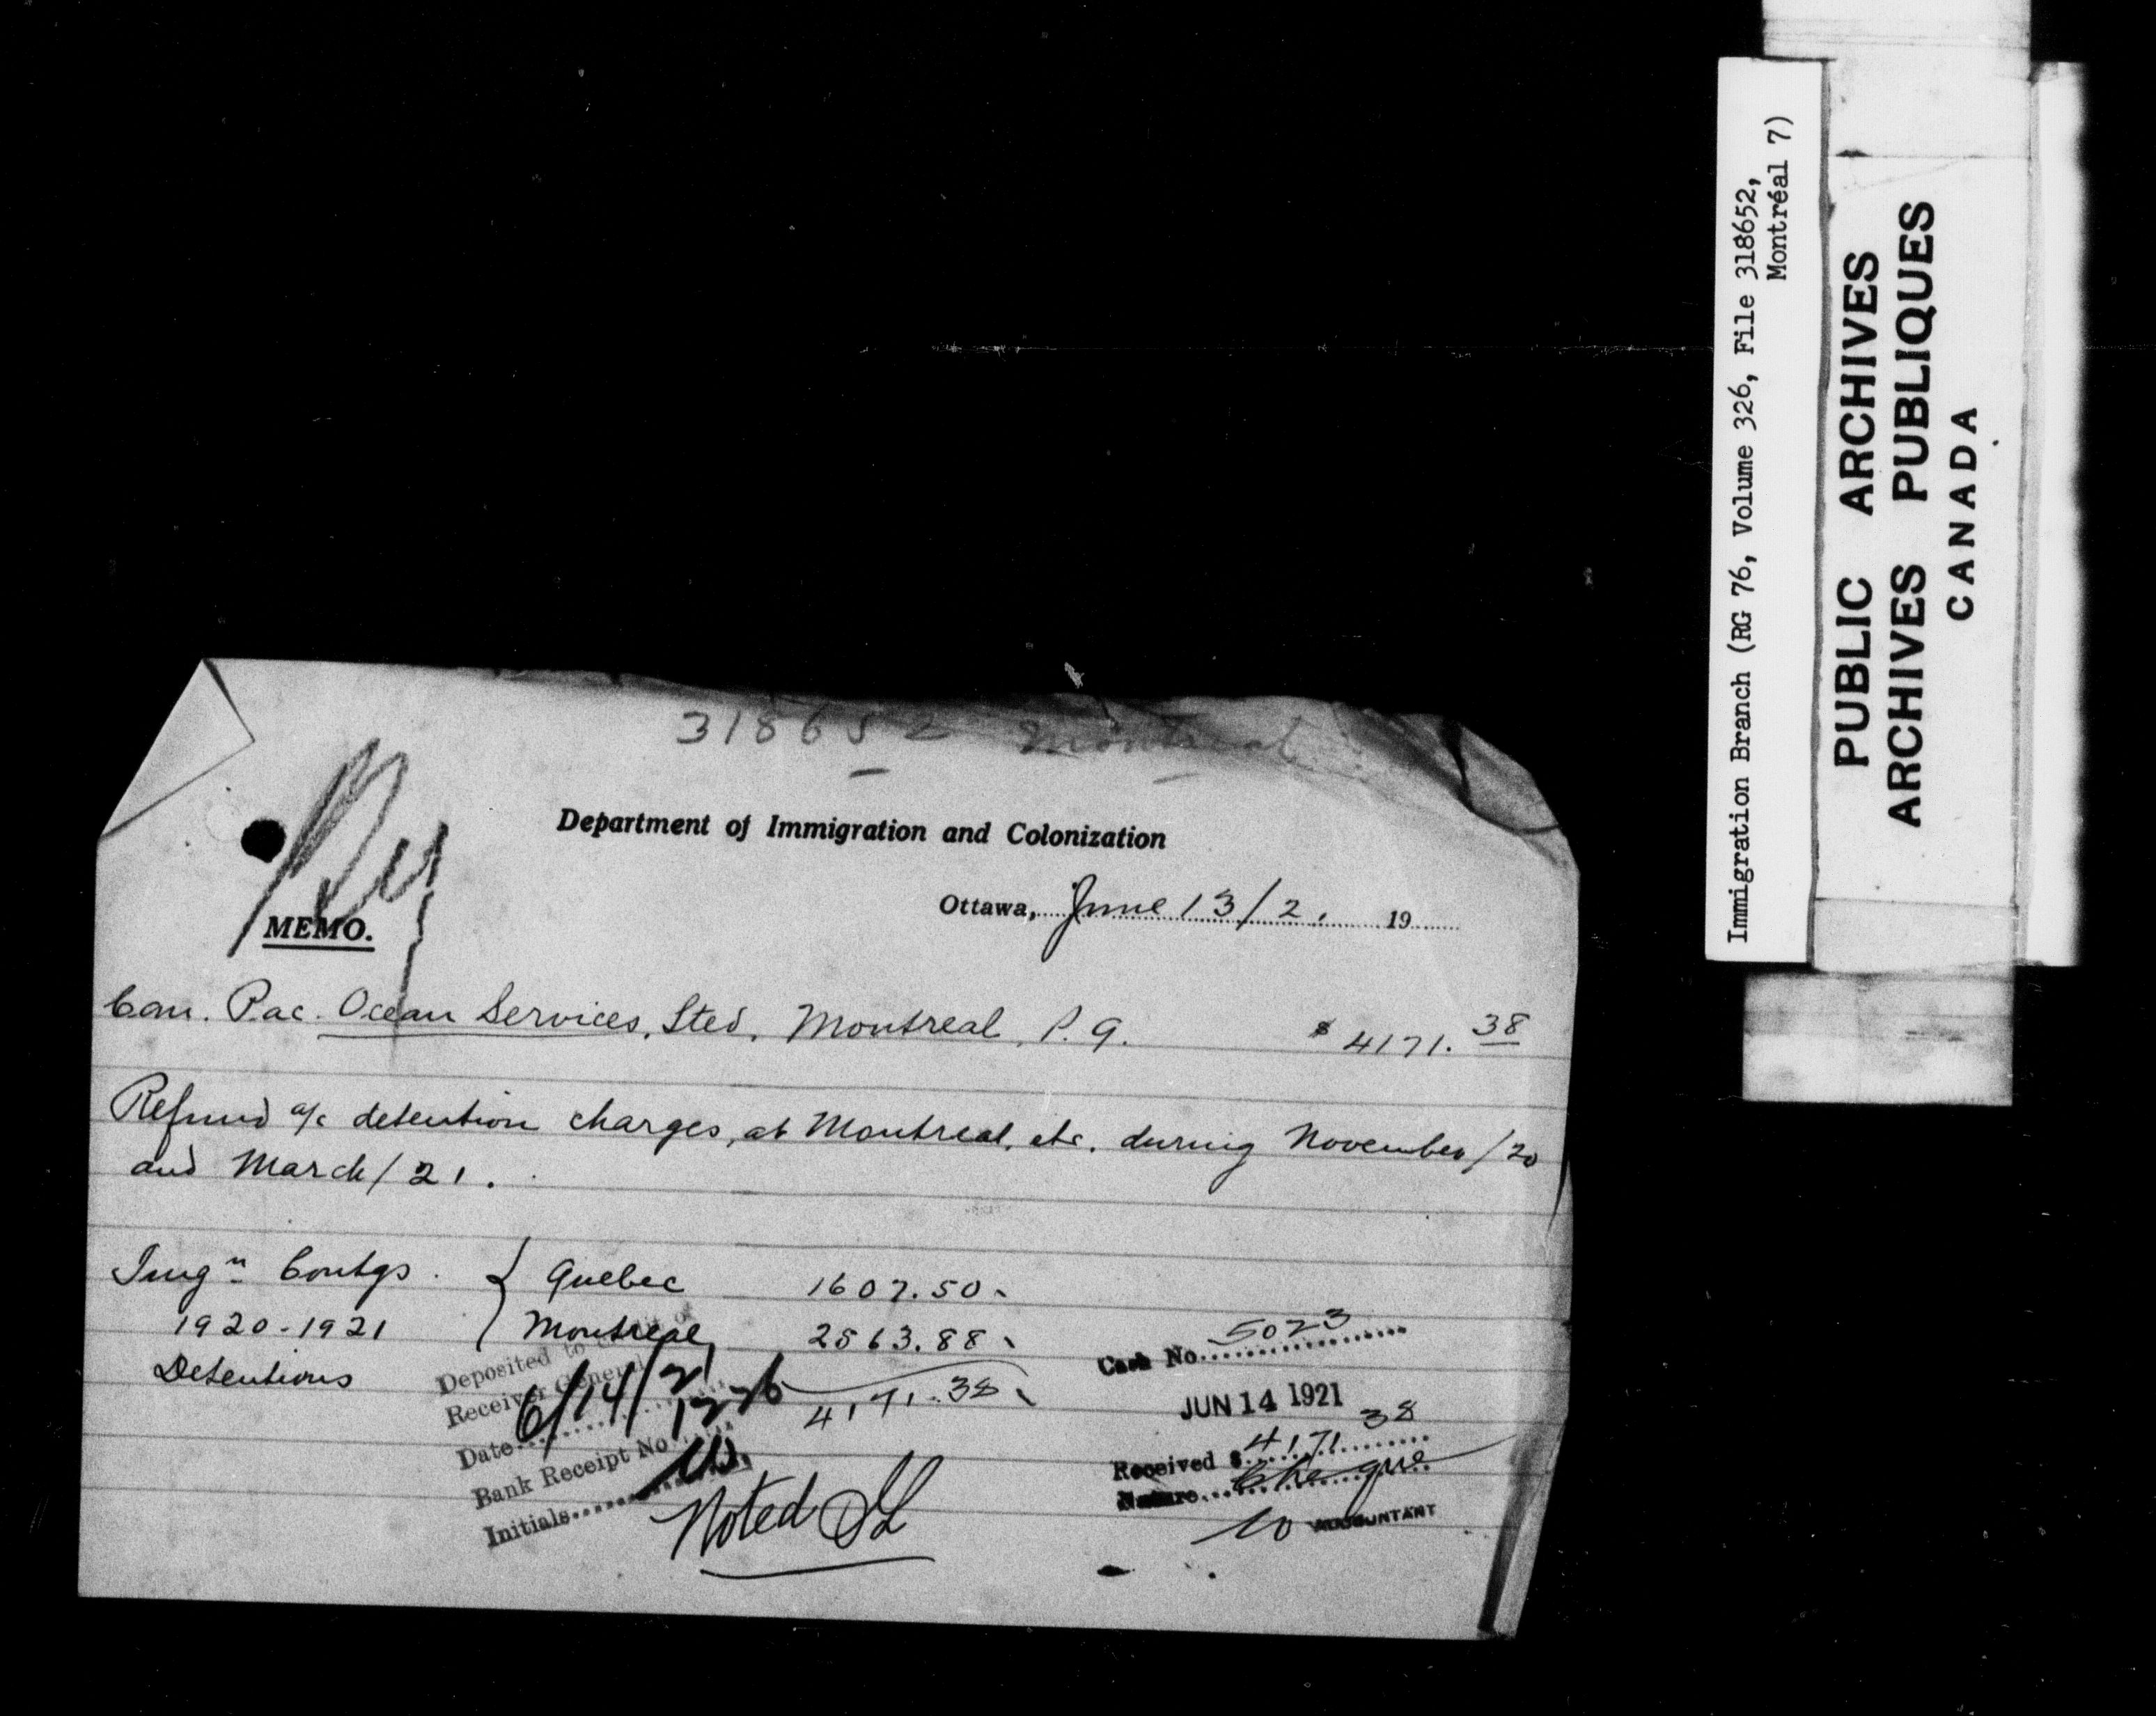 318652 Montreal
Department of Immigration and Colonization
Ottawa, June 13/21 19
MEMO.
Can. Pac. Ocean Services, Lted, Montreal, P.Q. $4171.38
Refund a/c detention charges, at Montreal, etc. during November/20
and March/21.
Imgn Contgs. { Quebec 1607.50
1920-1921 Montreal 2563.88
Detentions 4171.38
Deposited to credit of
Receiver General
Date 6/14/21
Bank Receipt No 1276
Initials
Noted
Cash No. 5023
JUN 14 1921
Received $ 4171 38
Nature Cheque
ACCOUNTANT
Immigration Branch (RG 76, Volume 326, File 318652,
Montréal 7)
PUBLIC ARCHIVES
ARCHIVES PUBLIQUES
CANADA